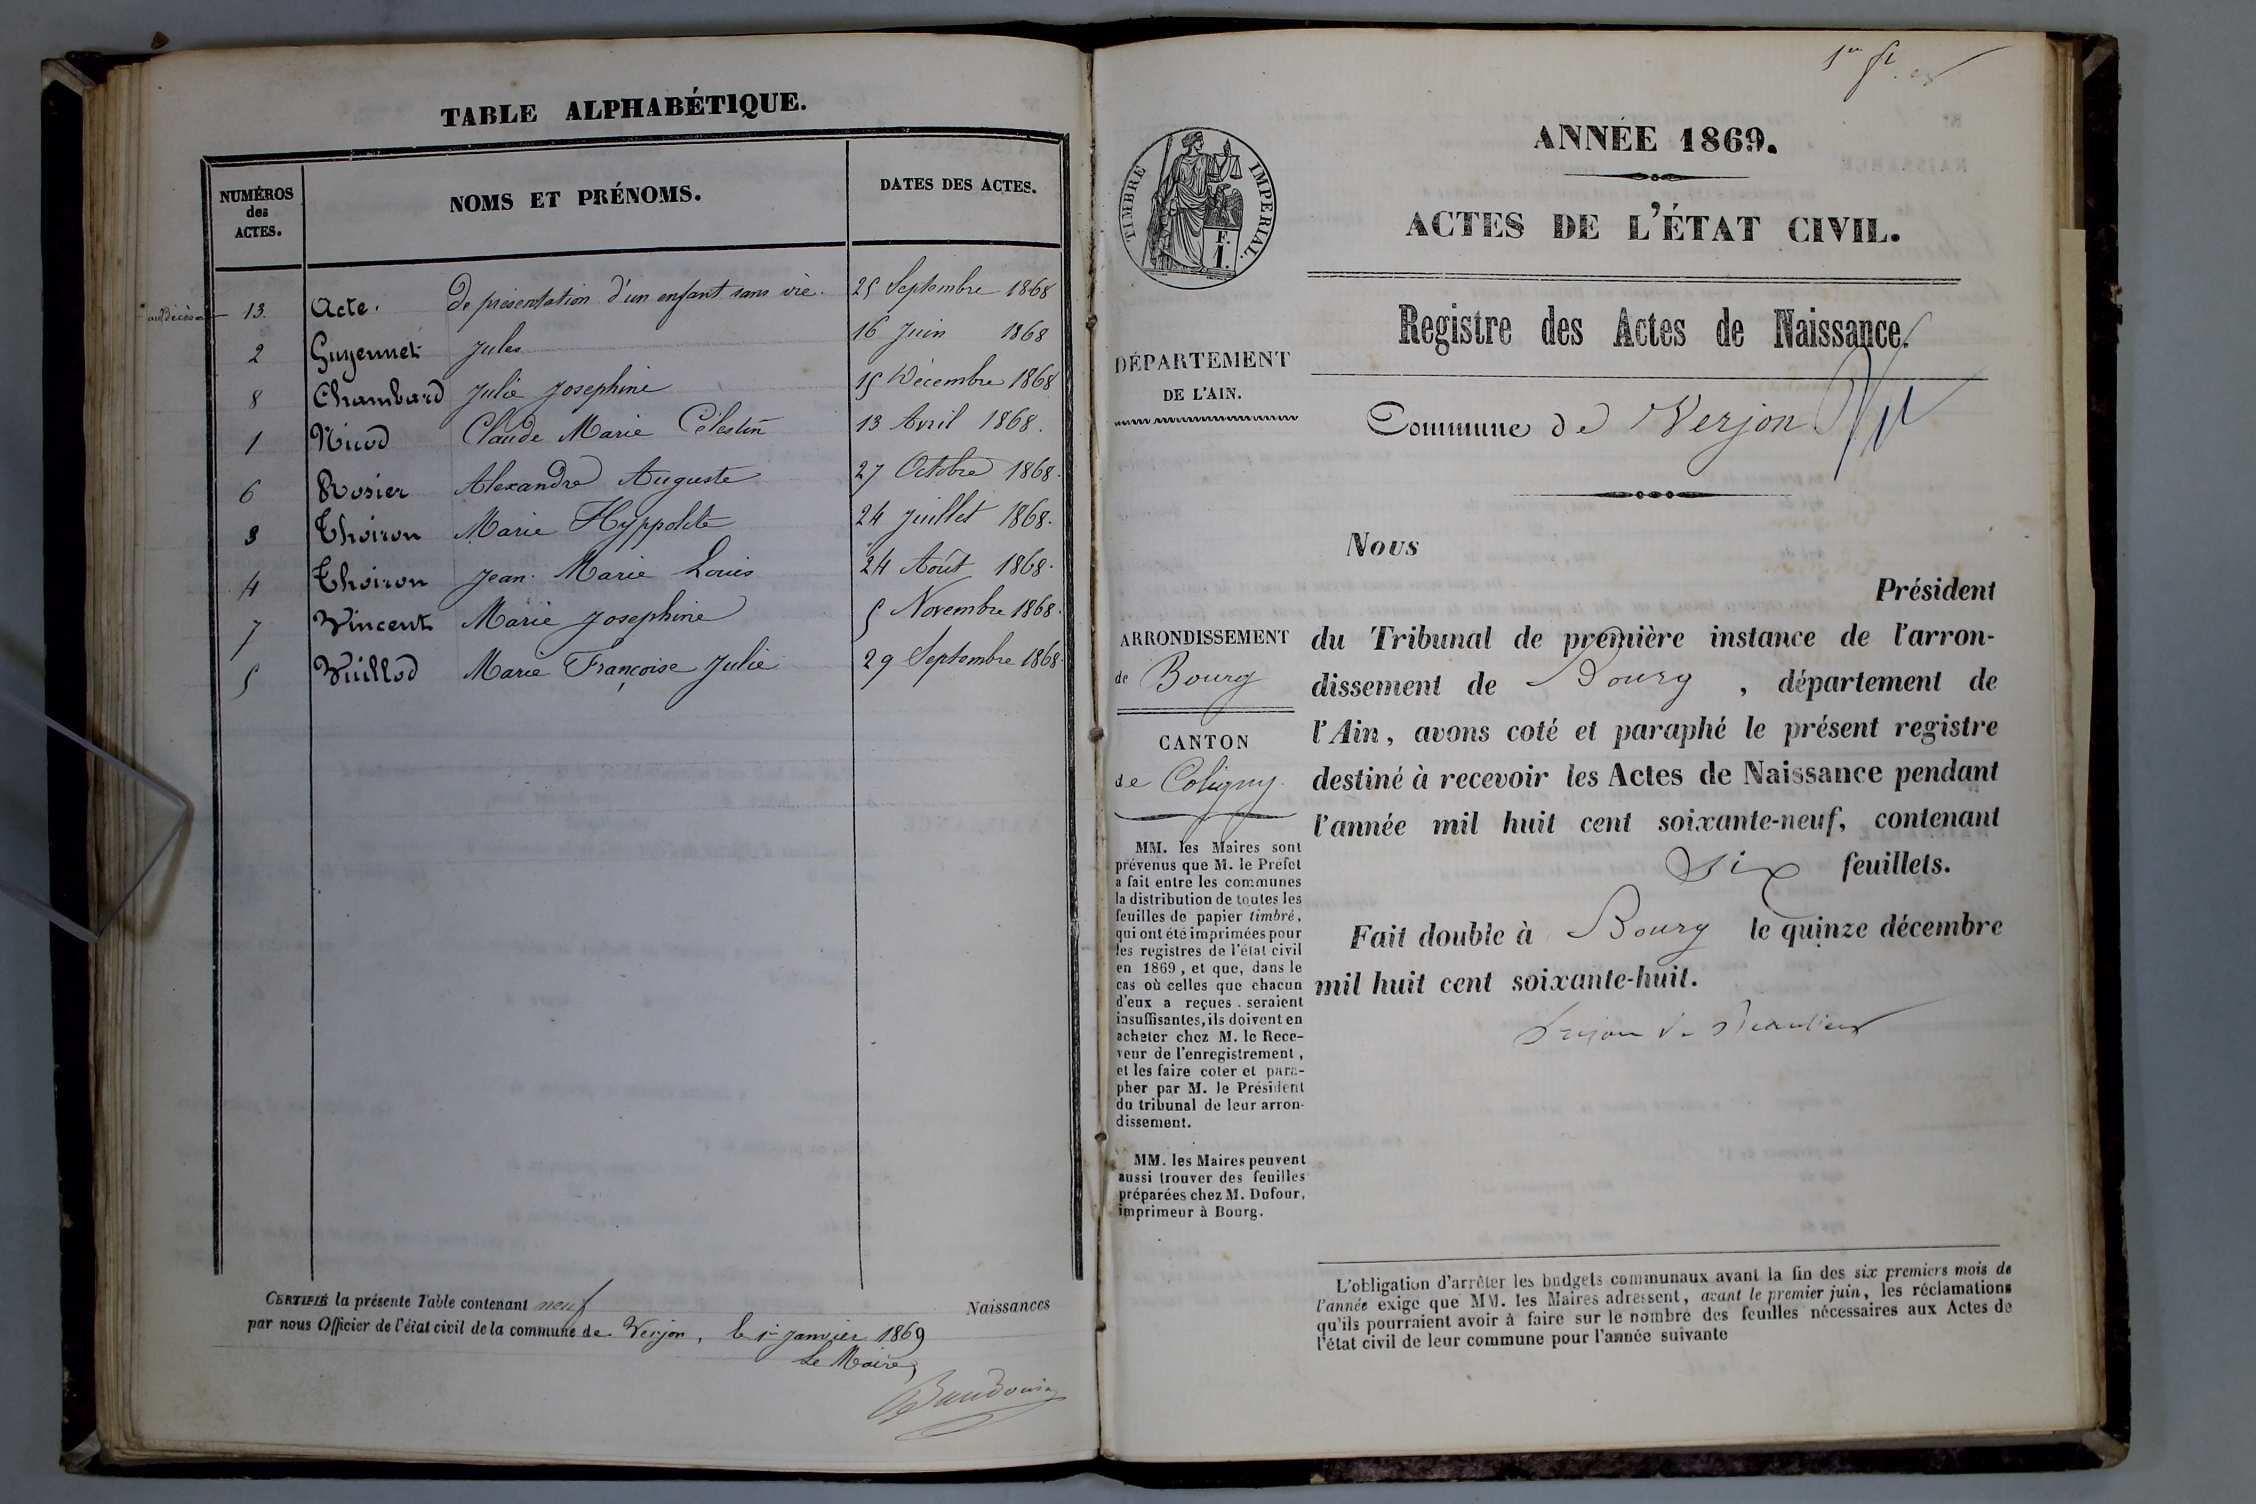 TABLE ALPHABÉTIQUE.
NUMÉROS des ACTES. NOMS ET PRÉNOMS. DATES DES ACTES.
13. Acte. de présentation d'un enfant sans vie. 25 Septembre 1868
2 Guyennet Jules 16 Juin 1868
8 Chambard Julie Josephine 15 Décembre 1868
1 Nicod Claude Marie Célestin 13 Avril 1868.
6 Rosier Alexandre Auguste 27 Octobre 1868.
3 Thoiron Marie Hyppolite 24 Juillet 1868.
4 Thoiron Jean Marie Louis 24 Août 1868.
7 Vincent Marie Josephine 5 Novembre 1868.
5 Vuillod Marie Françoise Julie 29 Septembre 1868.
CERTIFIÉ la présente Table contenant neuf Naissances
par nous Officier de l'état civil de la commune de Verjon, le 1er Janvier 1869
Le Maire,
Baudouin
ANNÉE 1869.
TIMBRE IMPERIAL.
F.
1.
ACTES DE L'ÉTAT CIVIL.
Registre des Actes de Naissance.
Commune de Verjon
DÉPARTEMENT
DE L'AIN.
ARRONDISSEMENT
de Bourg
CANTON
de Coligny.
MM. les Maires sont
prévenus que M. le Préfet
a fait entre les communes
la distribution de toutes les
feuilles de papier timbré,
qui ont été imprimées pour
les registres de l'état civil
en 1869, et que, dans le
cas où celles que chacun
d'eux a reçues seraient
insuffisantes, ils doivent en
acheter chez M. le Rece-
veur de l'enregistrement,
et les faire coter et para-
pher par M. le Président
du tribunal de leur arron-
dissement.
MM. les Maires peuvent
aussi trouver des feuilles
préparées chez M. Dufour,
imprimeur à Bourg.
Nous
Président
du Tribunal de première instance de l'arron-
dissement de Bourg, département de
l'Ain, avons coté et paraphé le présent registre
destiné à recevoir les Actes de Naissance pendant
l'année mil huit cent soixante-neuf, contenant
six feuillets.
Fait double à Bourg le quinze décembre
mil huit cent soixante-huit.
L'obligation d'arrêter les budgets communaux avant la fin des six premiers mois de
l'année exige que MM. les Maires adressent, avant le premier juin, les réclamations
qu'ils pourraient avoir à faire sur le nombre des feuilles nécessaires aux Actes de
l'état civil de leur commune pour l'année suivante